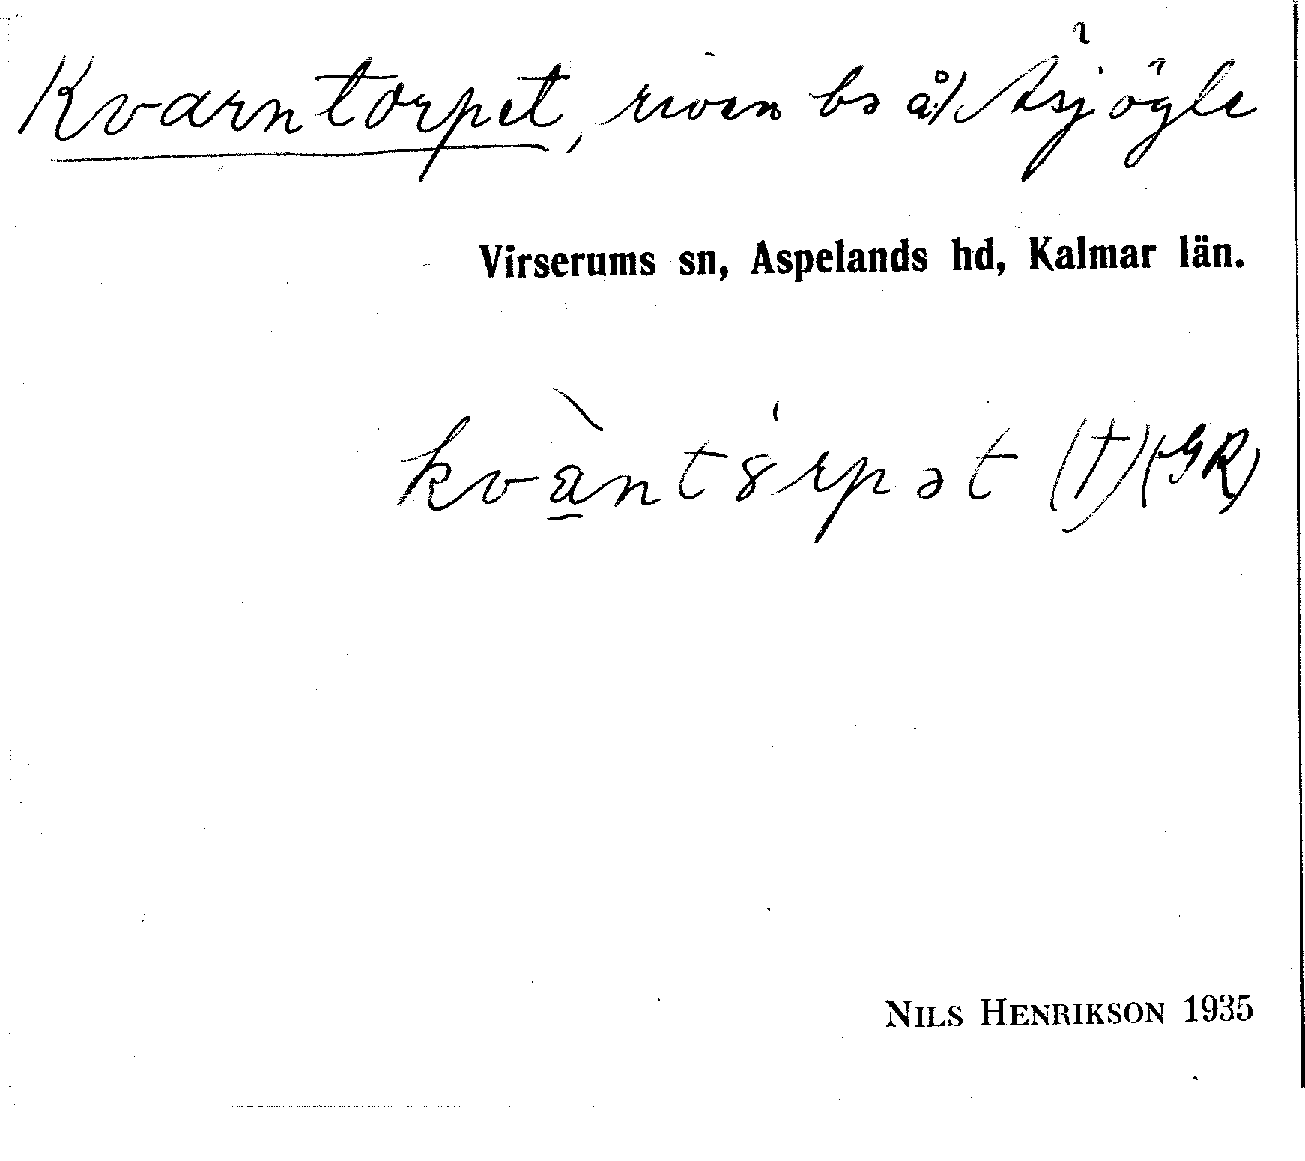 Kvarntorpet, riven bs å/ Åsjögle
Virserums sn, Aspelands hd, Kalmar län.
kvàntȣrpət (†) (GR)
NILS HENRIKSON 1935